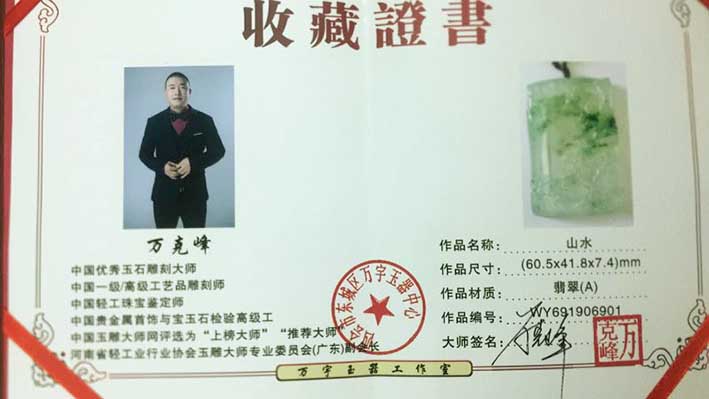 收藏證書
万克峰
中国优秀玉石雕刻大师
中国一级/高级工艺品雕刻师
中国轻工珠宝鉴定师
中国贵金属首饰与宝玉石检验高级工
中国玉雕大师网评选为“上榜大师”“推荐大师”
河南省轻工业行业协会玉雕大师专业委员会(广东)副会长
作品名称: 山水
作品尺寸: (60.5x41.8x7.4)mm
作品材质: 翡翠(A)
作品编号: WY691906901
大师签名:
万克峰
市东城区万宇玉器中心
万宇玉器工作室